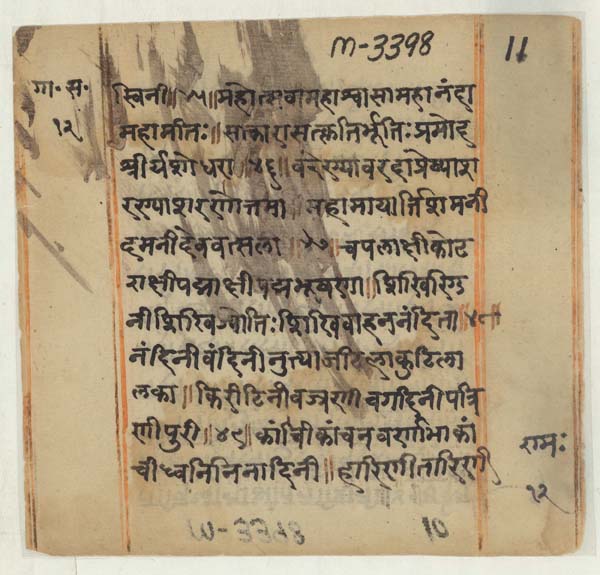 m-3398
11
गा. स.
१२
स्विनी॥४५॥महोत्सवामहाश्वासामहानंदा
महामतिः॥साकारासत्कृतिर्भूतिःप्रमोद
श्रीर्यशोधरा॥४६॥वरेण्यावरदाप्रेष्याश
रण्याशरणोत्तमा॥महामायार्तिशमनी
दमनीदेववत्सला॥४७॥चपलाक्षीकोट
राक्षीपद्माक्षीपद्मभूषणा॥शिखिरिग
नीशिखिज्योतिःशिखिवाहननंदिता॥४८॥
नंदिनीवंदिनीनुत्याजटिलाकुटिला
लका॥किरीटिनीवज्रपाणी वर्गदिनीपत्रि
णीपुरी॥४९॥कांचिकांचनवर्णाभाकां
चीध्वनिनिनादिनी॥हारिणीतारिणी
रामः
१२
10